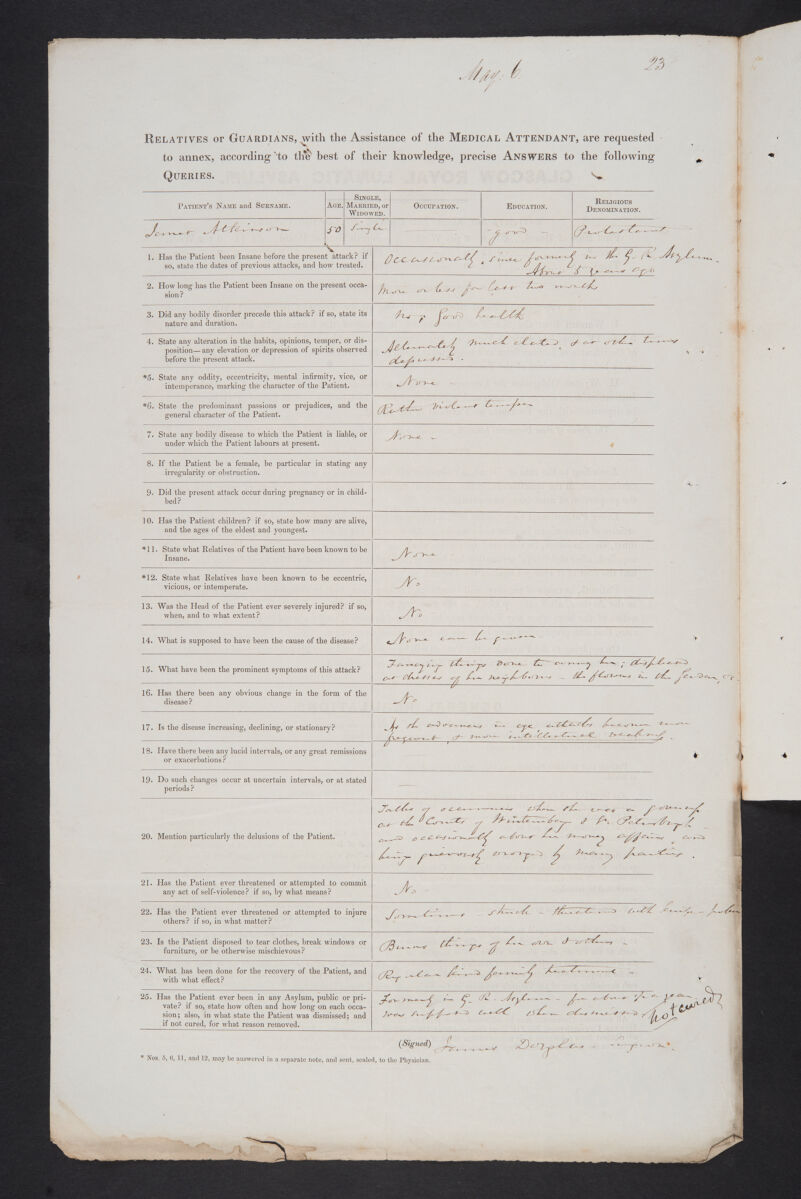 May. 6.
23
RELATIVES or GUARDIANS, with the Assistance of the MEDICAL ATTENDANT, are requested
to annex, according to the best of their knowledge, precise ANSWERS to the following
QUERIES.
PATIENT'S NAME and SURNAME. AGE. SINGLE, MARRIED, or WIDOWED. OCCUPATION. EDUCATION. RELIGIOUS DENOMINATION.
Atkinson 50 Single good Protestant
1. Has the Patient been Insane before the present attack? if
so, state the dates of previous attacks, and how treated.
Occasionally, since formerly in the G. R. Asylum.
About 5 years ago
2. How long has the Patient been Insane on the present occa-
sion?
More or less for last two months
3. Did any bodily disorder precede this attack? if so, state its
nature and duration.
No, good health
4. State any alteration in the habits, opinions, temper, or dis-
position—any elevation or depression of spirits observed
before the present attack.
Alternately much elated, & at other times
depressed.
*5. State any oddity, eccentricity, mental infirmity, vice, or
intemperance, marking the character of the Patient.
None
*6. State the predominant passions or prejudices, and the
general character of the Patient.
Rather violent temper
7. State any bodily disease to which the Patient is liable, or
under which the Patient labours at present.
None -
8. If the Patient be a female, be particular in stating any
irregularity or obstruction.
9. Did the present attack occur during pregnancy or in child-
bed?
10. Has the Patient children? if so, state how many are alive,
and the ages of the eldest and youngest.
*11. State what Relatives of the Patient have been known to be
Insane.
None
*12. State what Relatives have been known to be eccentric,
vicious, or intemperate.
No
13. Was the Head of the Patient ever severely injured? if so,
when, and to what extent?
No
14. What is supposed to have been the cause of the disease?
None can be given
15. What have been the prominent symptoms of this attack?
Fancying things done to annoy her; displeased
at dresses of her neighbours - the flowers in the garden, &c
16. Has there been any obvious change in the form of the
disease?
No
17. Is the disease increasing, declining, or stationary?
As she advances in age attacks become more
frequent, & more intellectual weakness.
18. Have there been any lucid intervals, or any great remissions
or exacerbations?
19. Do such changes occur at uncertain intervals, or at stated
periods?
20. Mention particularly the delusions of the Patient.
Talks of occurrences when she was a governess
at the Courts of & St. Petersburgh
and occasionally about her money affairs, and
being grievously wronged by many parties.
21. Has the Patient ever threatened or attempted to commit
any act of self-violence? if so, by what means?
No
22. Has the Patient ever threatened or attempted to injure
others? if so, in what matter?
Sometimes struck - threatened with knife -
23. Is the Patient disposed to tear clothes, break windows or
furniture, or be otherwise mischievous?
Burns things of her own & others -
24. What has been done for the recovery of the Patient, and
with what effect?
Regular kind family treatment -
25. Has the Patient ever been in any Asylum, public or pri-
vate? if so, state how often and how long on each occa-
sion; also, in what state the Patient was dismissed; and
if not cured, for what reason removed.
Formerly in G. R. Asylum - for about
was supposed well when dismissed
not cured?
(Signed) surgeon.
* Nos. 5, 6, 11, and 12, may be answered in a separate note, and sent, sealed, to the Physician.